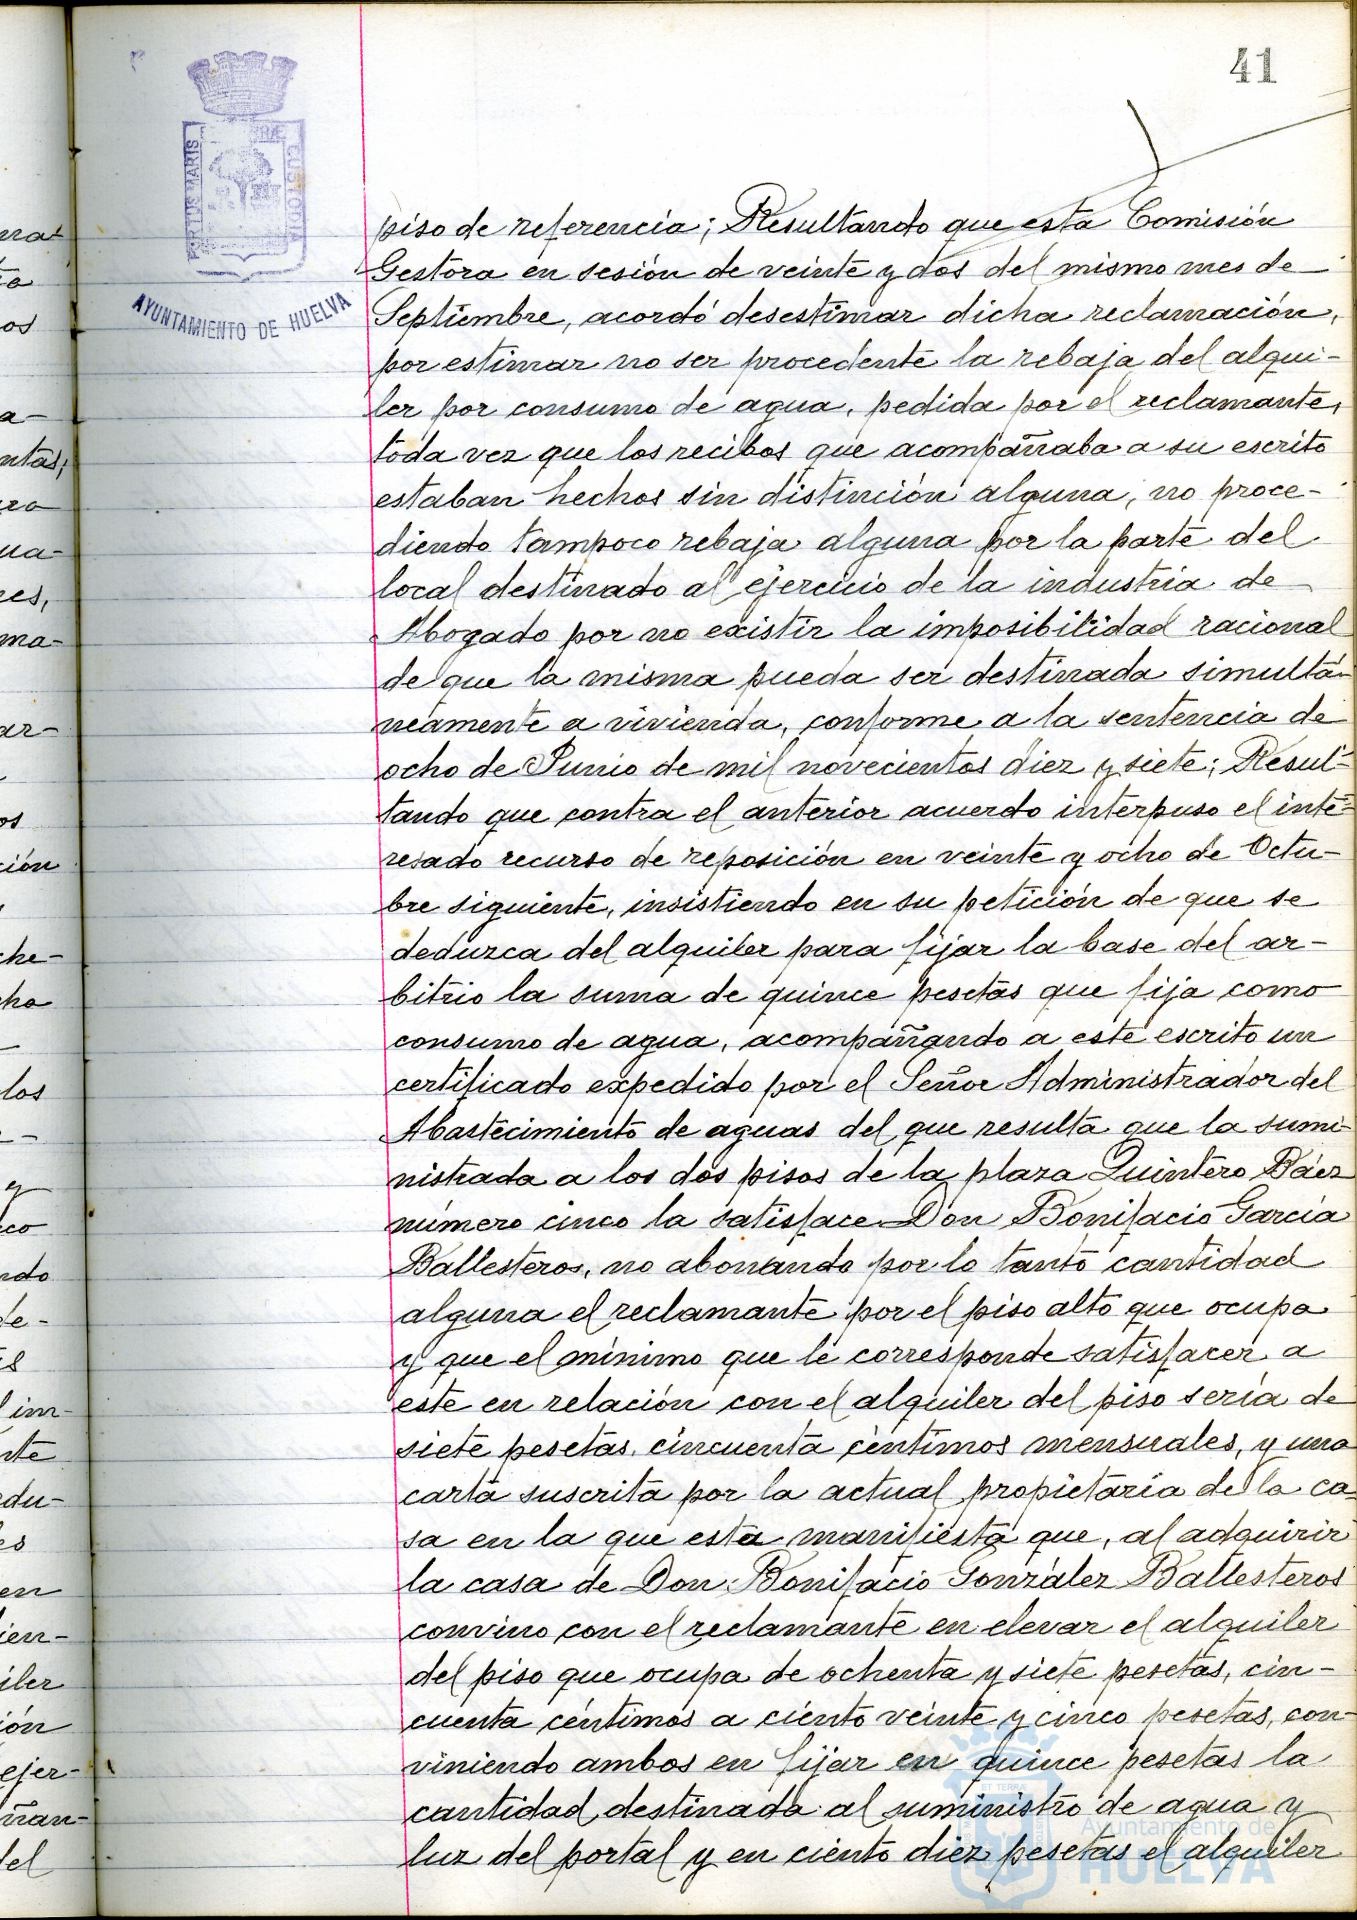 41
PORTUS MARIS ET TERRÆ CUSTODIA
AYUNTAMIENTO DE HUELVA
piso de referencia; Resultando que esta Comisión
Gestora en sesión de veinte y dos del mismo mes de
Septiembre, acordó desestimar dicha reclamación,
por estimar no ser procedente la rebaja del alqui-
ler por consumo de agua, pedida por el reclamante,
toda vez que los recibos que acompañaba a su escrito
estaban hechos sin distinción alguna, no proce-
diendo tampoco rebaja alguna por la parte del
local destinado al ejercicio de la industria de
Abogado por no existir la imposibilidad racional
de que la misma pueda ser destinada simultá-
neamente a vivienda, conforme a la sentencia de
ocho de Junio de mil novecientos diez y siete; Resul-
tando que contra el anterior acuerdo interpuso el inte-
resado recurso de reposición en veinte y ocho de Octu-
bre siguiente, insistiendo en su petición de que se
deduzca del alquiler para fijar la base del ar-
bitrio la suma de quince pesetas que fija como
consumo de agua, acompañando a este escrito un
certificado expedido por el Señor Administrador del
Abastecimiento de aguas del que resulta que la sumi-
nistrada a los dos pisos de la plaza Quintero Báez
número cinco la satisface Don Bonifacio García
Ballesteros, no abonando por lo tanto cantidad
alguna el reclamante por el piso alto que ocupa
y que el mínimo que le corresponde satisfacer a
este en relación con el alquiler del piso sería de
siete pesetas cincuenta céntimos mensuales, y una
carta suscrita por la actual propietaria de la ca-
sa en la que esta manifiesta que, al adquirir
la casa de Don Bonifacio González Ballesteros
convino con el reclamante en elevar el alquiler
del piso que ocupa de ochenta y siete pesetas, cin-
cuenta céntimos a ciento veinte y cinco pesetas, con-
viniendo ambos en fijar en quince pesetas la
cantidad destinada al suministro de agua y
luz del portal y en ciento diez pesetas el alquiler
Ayuntamiento de
HUELVA